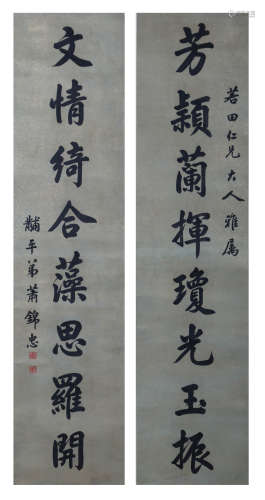 芳穎蘭揮瓊光玉振
若田仁兄大人雅属
文情綺合藻思羅開
黼平弟蕭錦忠